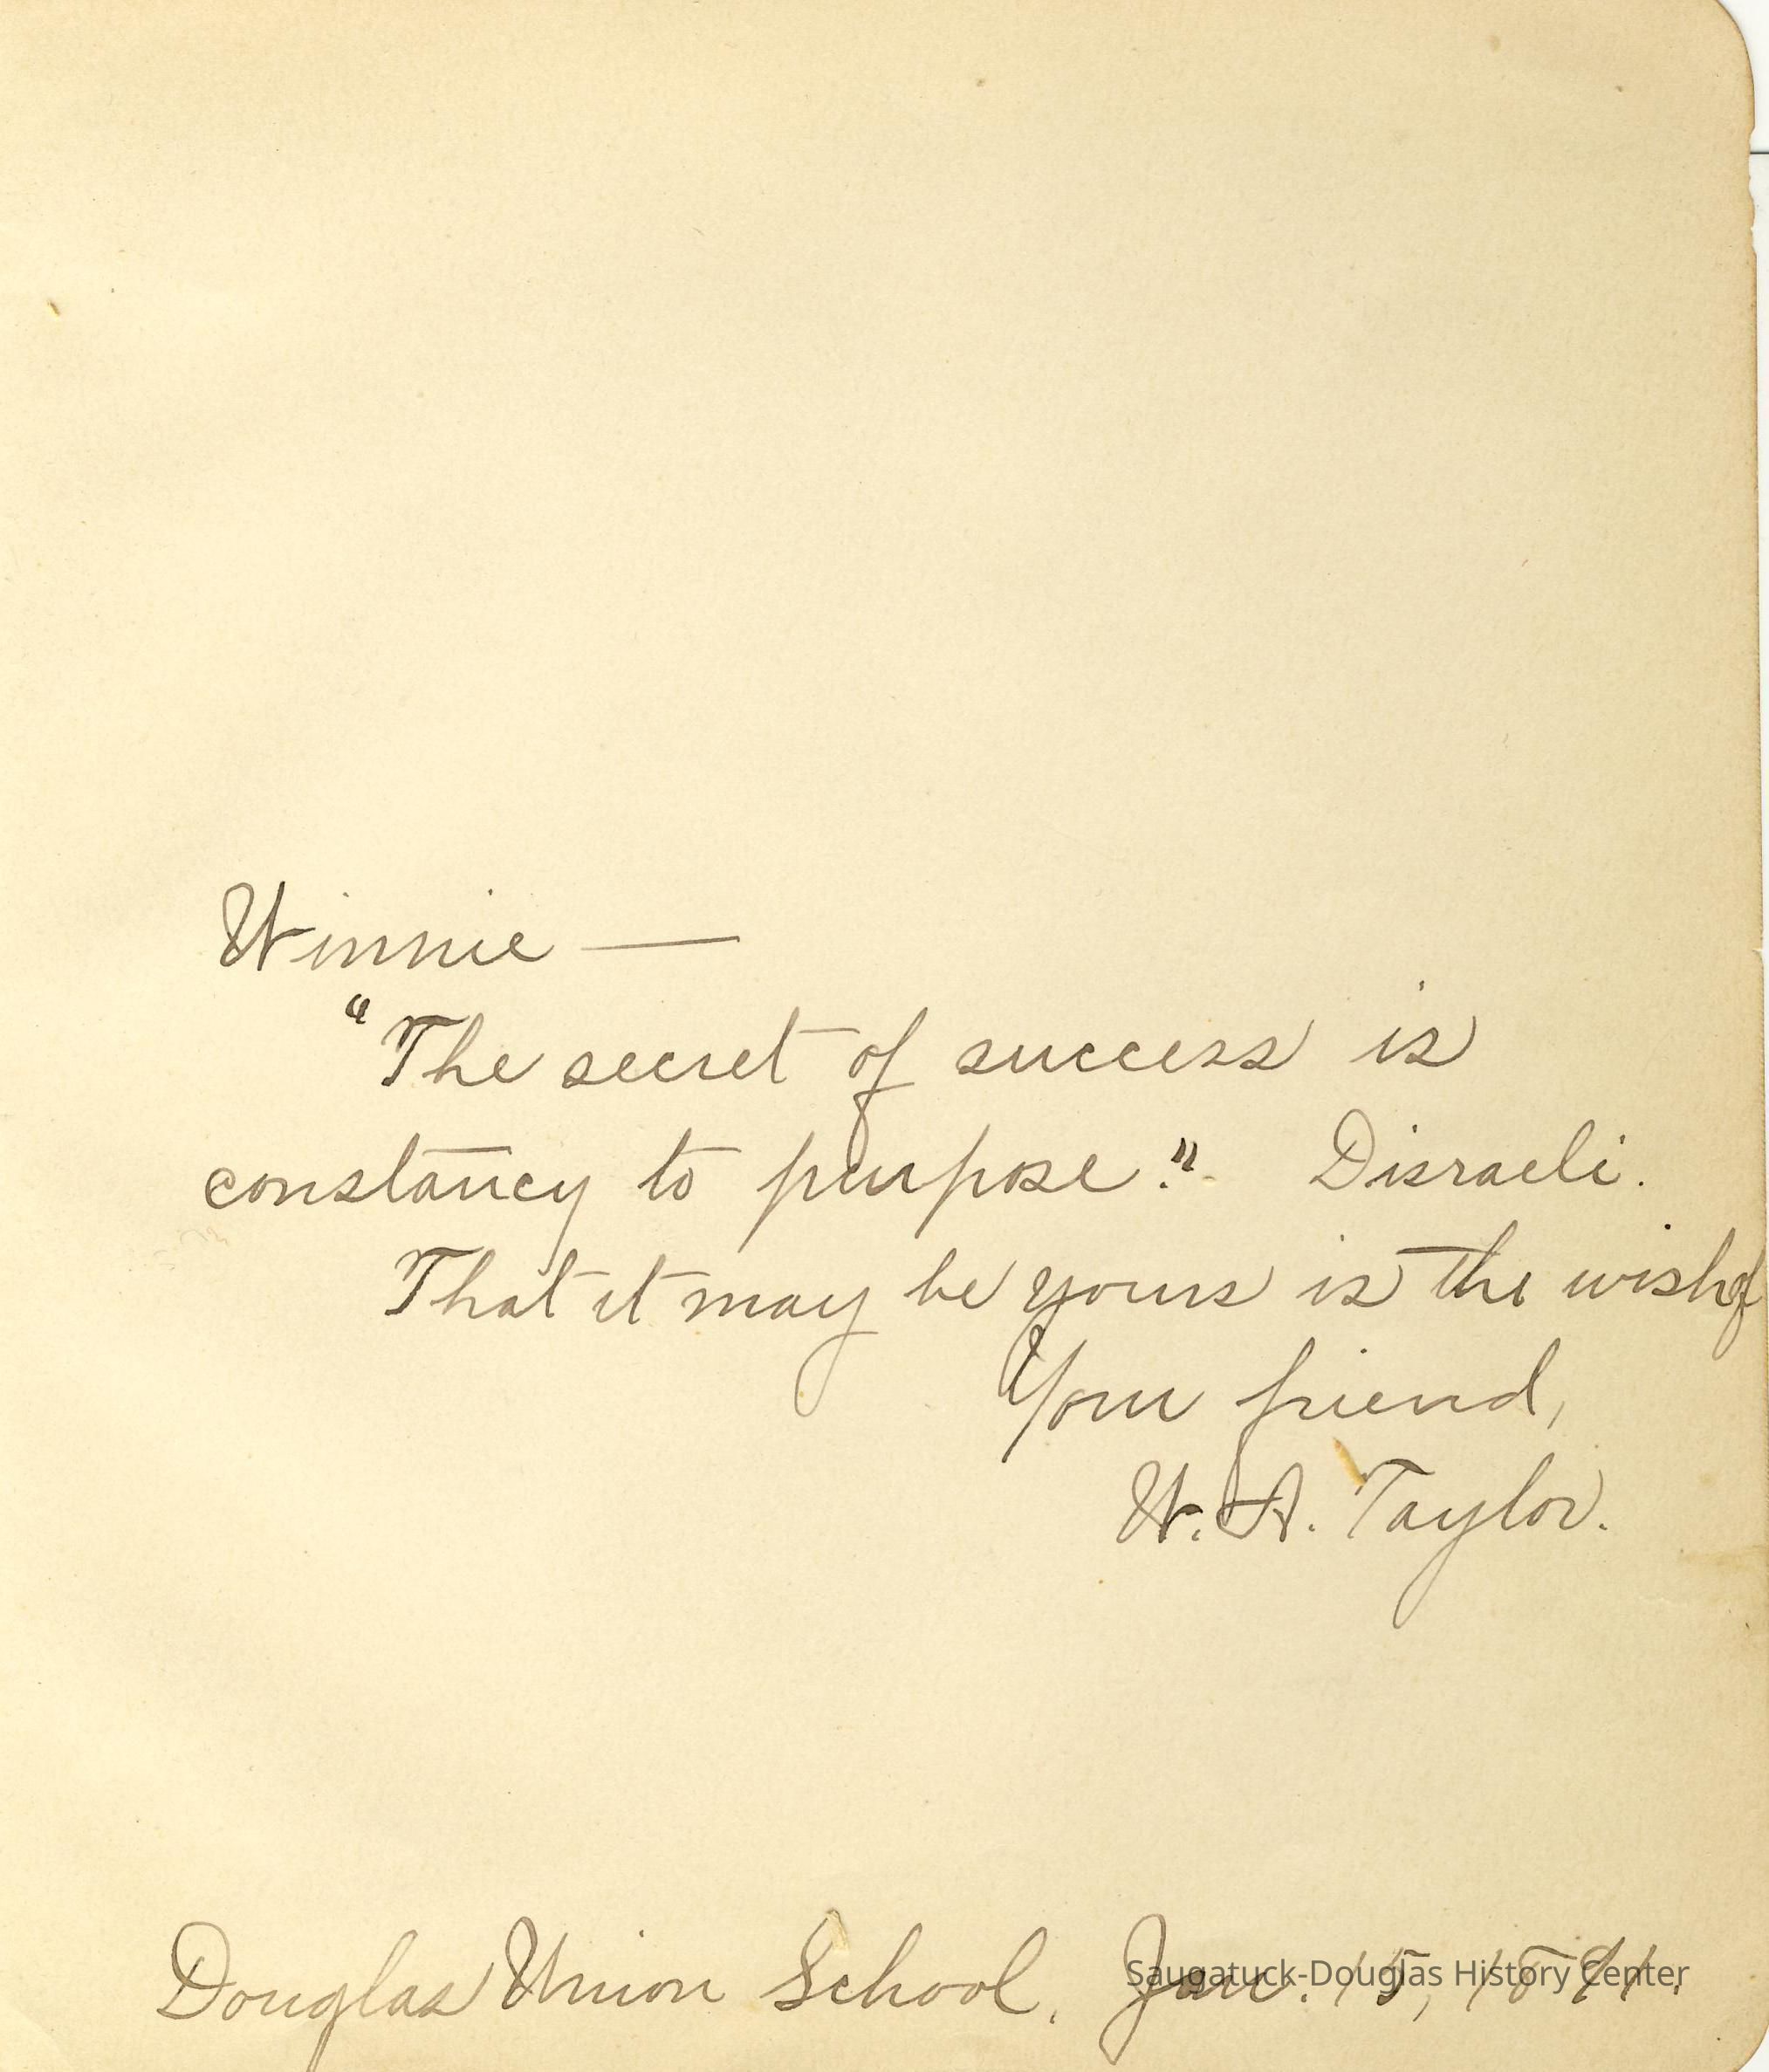 Winnie —
"The secret of success is
constancy to purpose." Disraeli.
That it may be yours is the wish of
Your friend,
W. A. Taylor.
Douglas Union School. Jan. 15, 1891.
Saugatuck-Douglas History Center